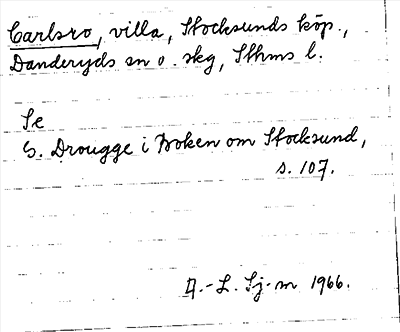 Carlsro, villa, Stocksunds köp.,
Danderyds sn o. skg, Sthms l.
Se
G. Drougge i Boken om Stocksund,
s. 107.
A.-L. Sj-m 1966.